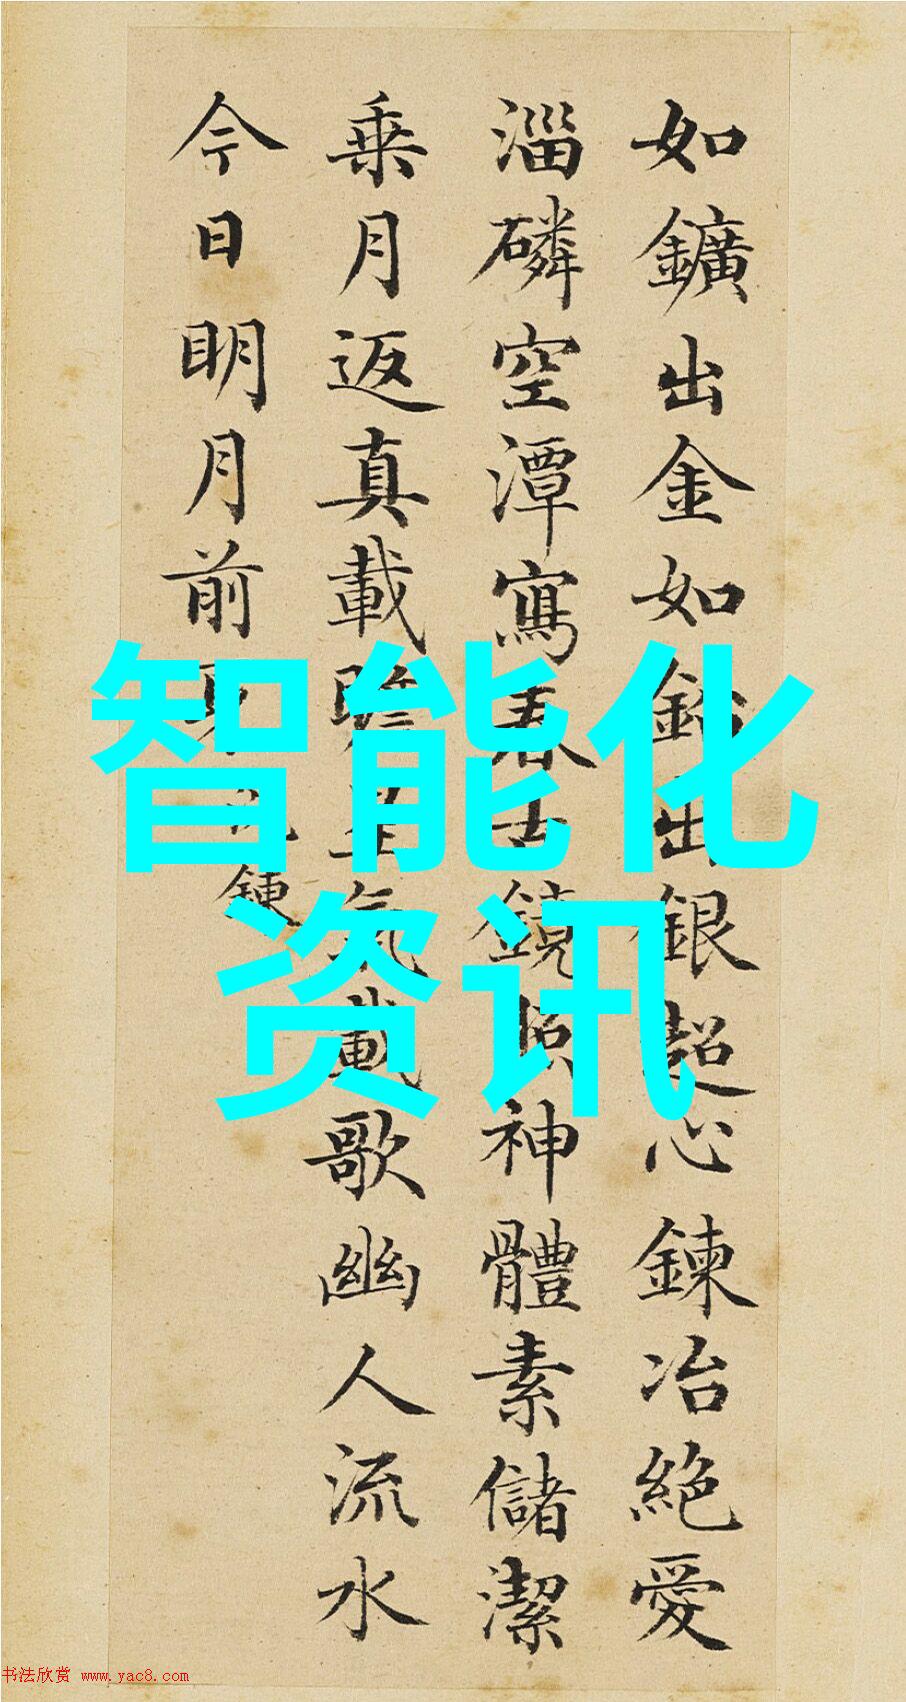 如鑛出金如鉛出銀超心鍊冶絕愛
淄磷空潭寫春古鏡照神體素儲潔
乘月返真載瞻星氣載歌幽人流水
今日明月前身
洗鍊
智能化
资讯
书法欣赏 www.yac8.com